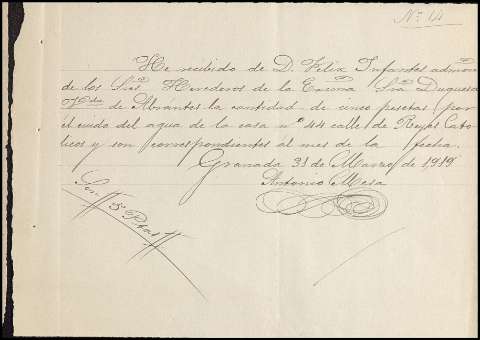 Nº 14
He recibido de D. Felix Infantes admor
de los Sres. Herederos de la Excma Sra Duquesa
Vda de Abrantes la cantidad de cinco pesetas por
el cuido del agua de la casa nº 44 calle de Reyes Cato
licos y son correspondientes al mes de la fecha.
Granada 31 de Marzo de 1919
Antonio Mesa
Son # 5 Ptas #